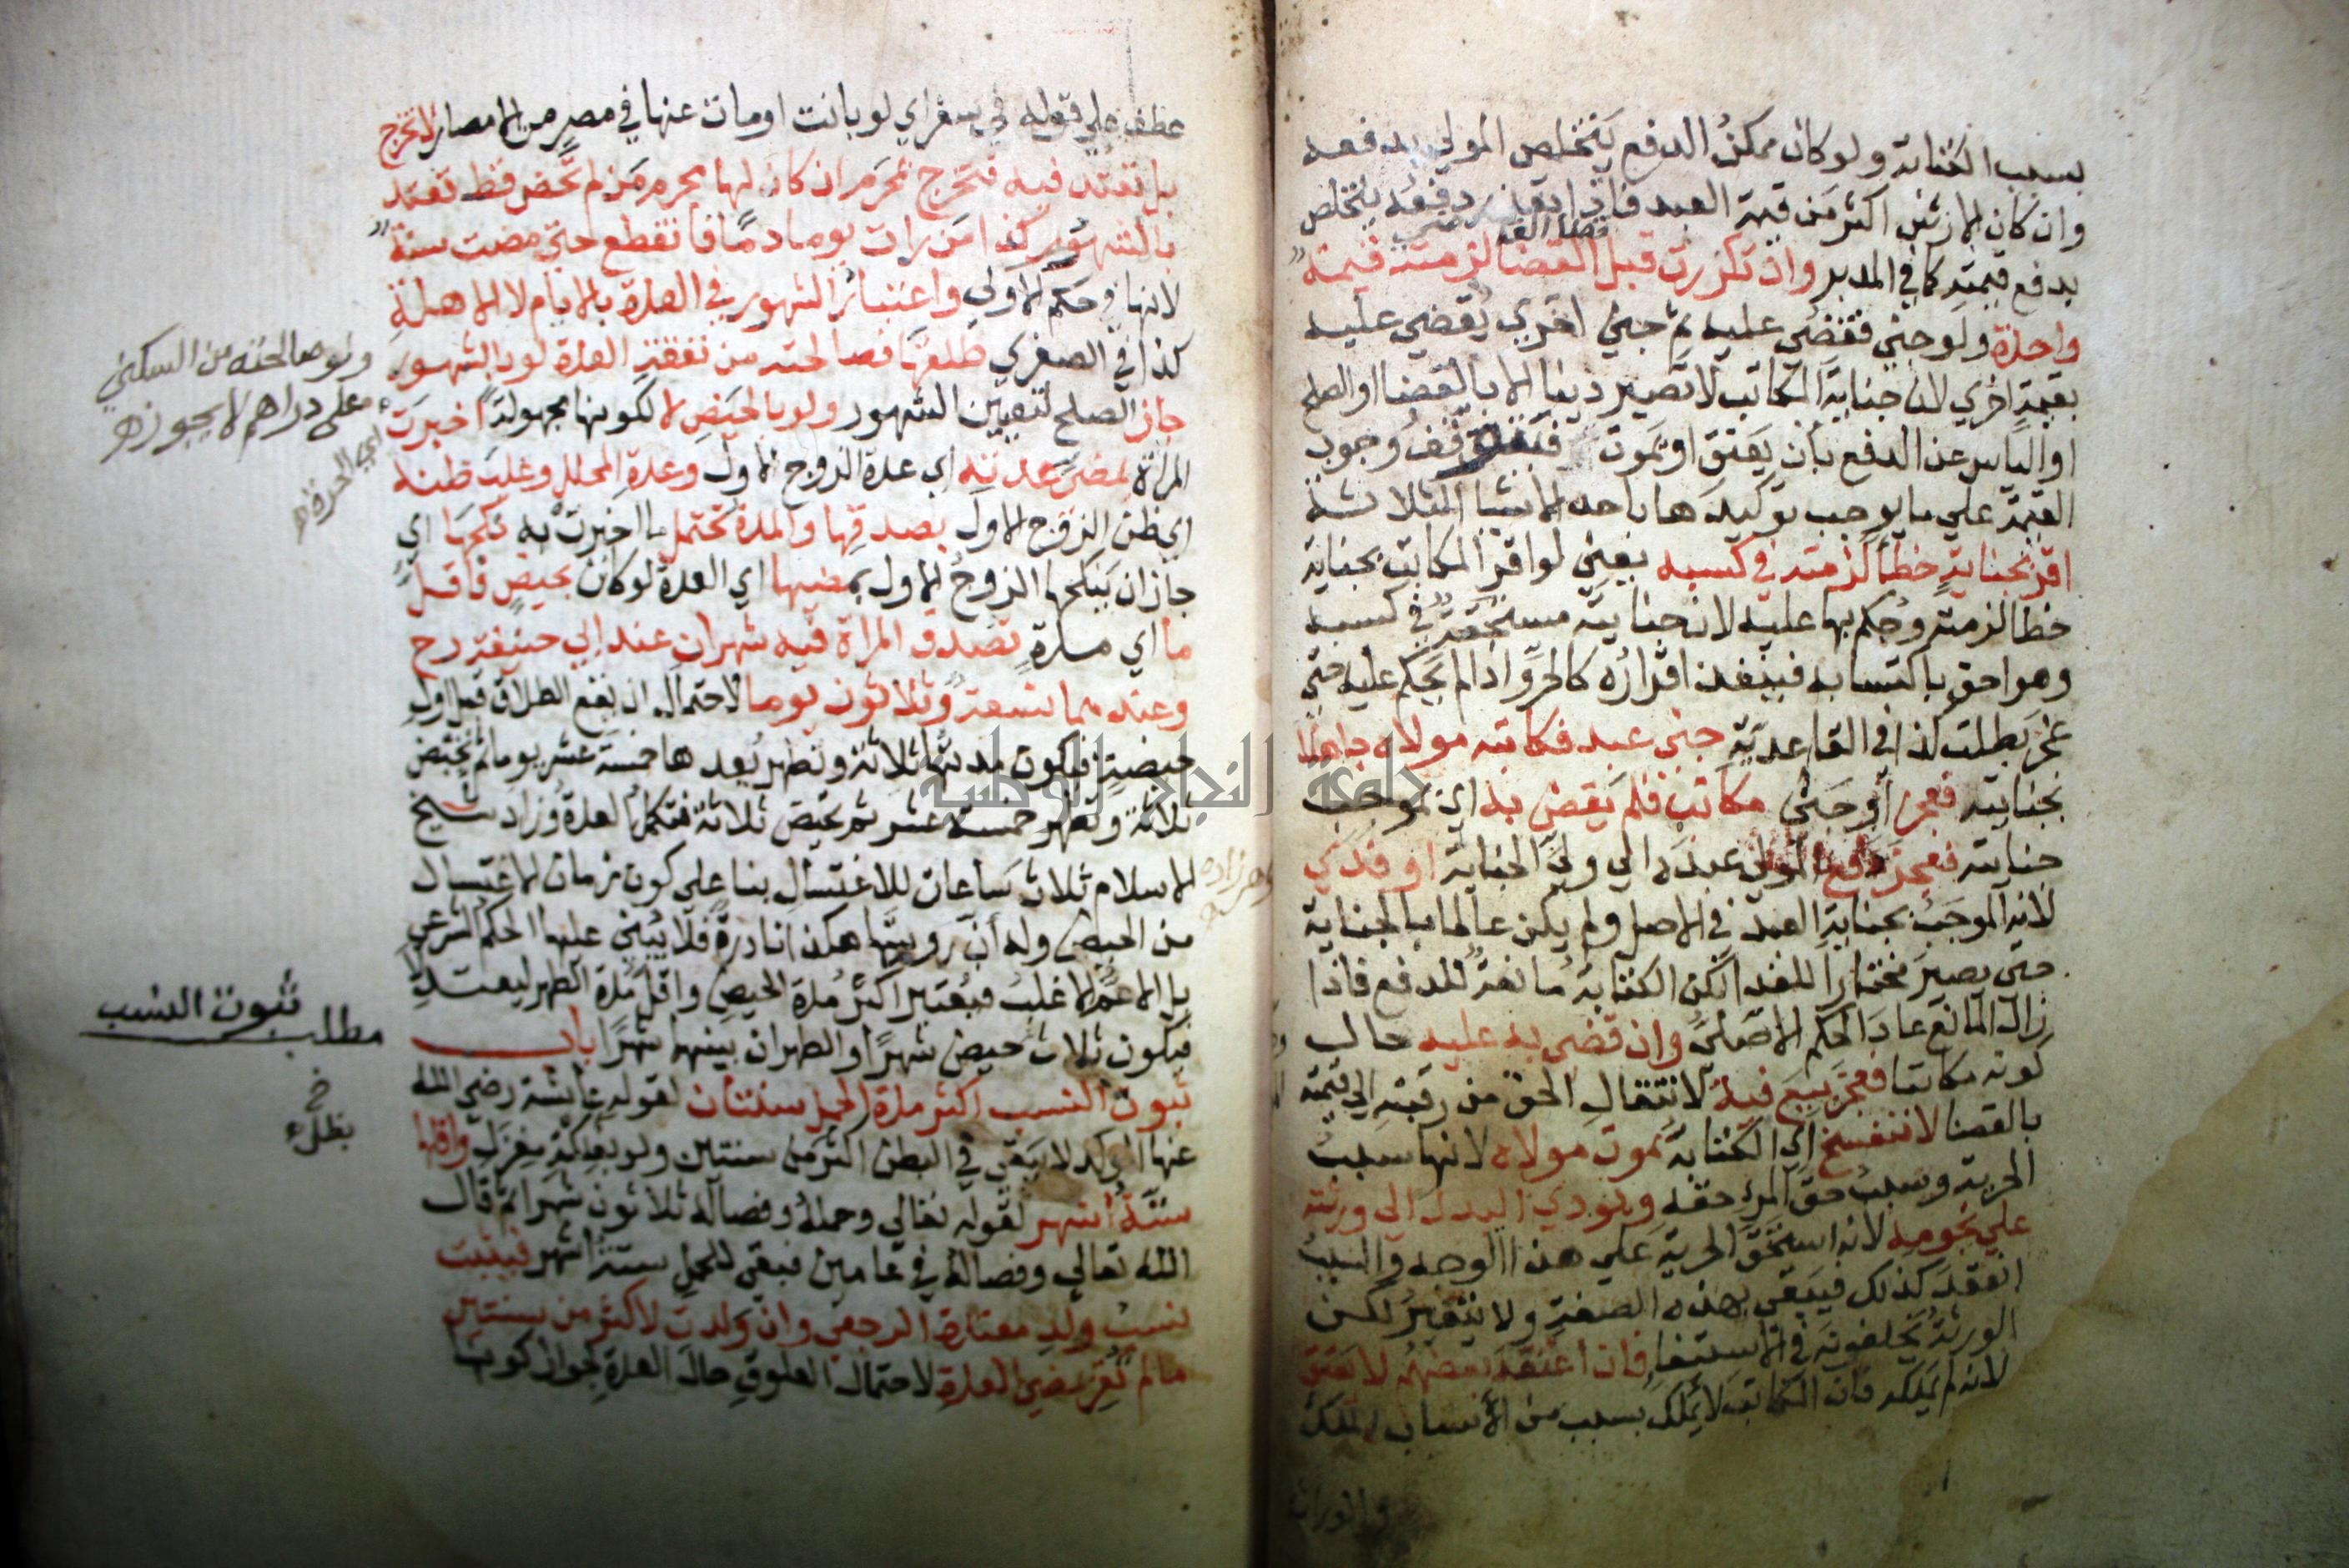 بسبب الكتابة ولو كان ممكن الدفع يتخلص المولي بدفعه
وان كان الارش اكثر من قيمة العبد فاذا تعذر دفعه يتخلص
بدفع قيمته كما في المدبر وان تكررت قبل القضا لزمته قيمة
واحدة ولو جني فقضي عليه ثم جني اخري يقضي عليه
بقيمة اخري لان جناية المكاتب لا تصير دينا الا بالقضا او الصلح
او الياس عن الدفع بان يعتق او يموت فيتوقف وجوب
القيمة علي ما يوجب توكيدها باحد الاشيا الثلاثة
اقر بجناية خطأ لزمته في كسبه يعني لو اقر المكاتب بجناية
خطا لزمته وحكم بها عليه لان جنايته مستحقة في كسبه
وهو احق باكتسابه فينفذ اقراره كالحر واذا لم يحكم عليه حتي
عجز بطلت كذا في القاعدية جني عبد فكاتبه مولاه جاهلا
بجنايته فعجز أو جني مكاتب فلم يقض به اي بموجب
جنايته فعجز دفع المولي عبده الي ولي الجناية او فدي
لانه الموجب بجناية العبد في الاصل ولم يكن عالما بالجناية
حتي يصير مختارا للفدا لكن الكتابة مانعة للدفع فاذا
زال المانع عاد الحكم الاصلي وان قضي به عليه حال
كونه مكاتبا فعجز بيع فيه لانتقال الحق من رقبته الي قيمته
بالقضا لا تنفسخ اي الكتابة بموت مولاه لانها سبب
الحرية وسبب حق المرء حقه ويؤدي البدل الي ورثته
علي نجومه لانه استحق الحرية علي هذا الوجه والسبب
انعقد كذلك فيبقي بهذه الصفة ولا يتغير لكن
الورثة يخلفونه في الاستيفا فان اعتقه بعضهم لا يعتق
لانه لم يملكه فان المكاتب لا يملك بسبب من الأسباب الملك
عطف علي قوله في سفر اي لو بانت او مات عنها في مصر من الامصار لا تخرج
بل تعتد فيه فتخرج بمحرم ان كان لها محرم من لم تحض قط تعتد
بالشهور كذا من رات يوما دما فانقطع حتي مضت سنة
لانها في حكم الاولي واعتبار الشهور في العدة بالايام لا الاهلة
كذا في الصغري طلقها فصالحته من نفقة العدة لو بالشهور
جاز الصلح لتعيين الشهور ولو بالحيض لا لكونها مجهولة اخبرت
المراة بمضي عدته اي عدة الزوج الاول وعدة المحلل وغلب ظنه
اي ظن الزوج الاول بصدقها والمدة تحتمل ما اخبرت به نكحها اي
جاز ان ينكحها الزوج الاول بمضيها اي العدة لو كان بحيض فاقل
ما اي مدة تصدق المراة فيه شهران عند ابي حنيفة رح
وعندهما تسعة وثلاثون يوما لاحتمال ان يقع الطلاق قبل اول
حيضة فيكون مدتها ثلاثة وتطهر بعدها خمسة عشر يوما ثم تحيض
ثلاثة وتطهر خمسة عشر ثم تحيض ثلاثة فتكمل العدة وزاد شيخ
الاسلام ثلاث ساعات للاغتسال بنا علي كون زمان الاغتسال
من الحيض وله أن رويتها هكذا نادرة فلا يبني عليها الحكم الشرعي
بل الاعم الاغلب فيعتبر اكثر مدة الحيض واقل مدة الطهر ليعتدلا
فيكون ثلاث حيض شهرا والطهران بينهما شهرا باب
ثبوت النسب اكثر مدة الحمل سنتان لقوله عائشة رضي الله
عنها الولد لا يبقي في البطن اكثر من سنتين ولو بفلكة مغزل واقلها
ستة أشهر لقوله تعالي وحمله وفصاله ثلاثون شهرا ثم قال
الله تعالي وفصاله في عامين فبقي للحمل ستة اشهر فيثبت
نسب ولد معتدة الرجعي وان ولدت لاكثر من سنتين
ما لم تقر بمضي العدة لاحتمال العلوق حال العدة لجواز كونها
ولو صالحته من السكني
علي دراهم لا يجوز
مطلب ثبوت النسب
جامعة النجاح الوطنية